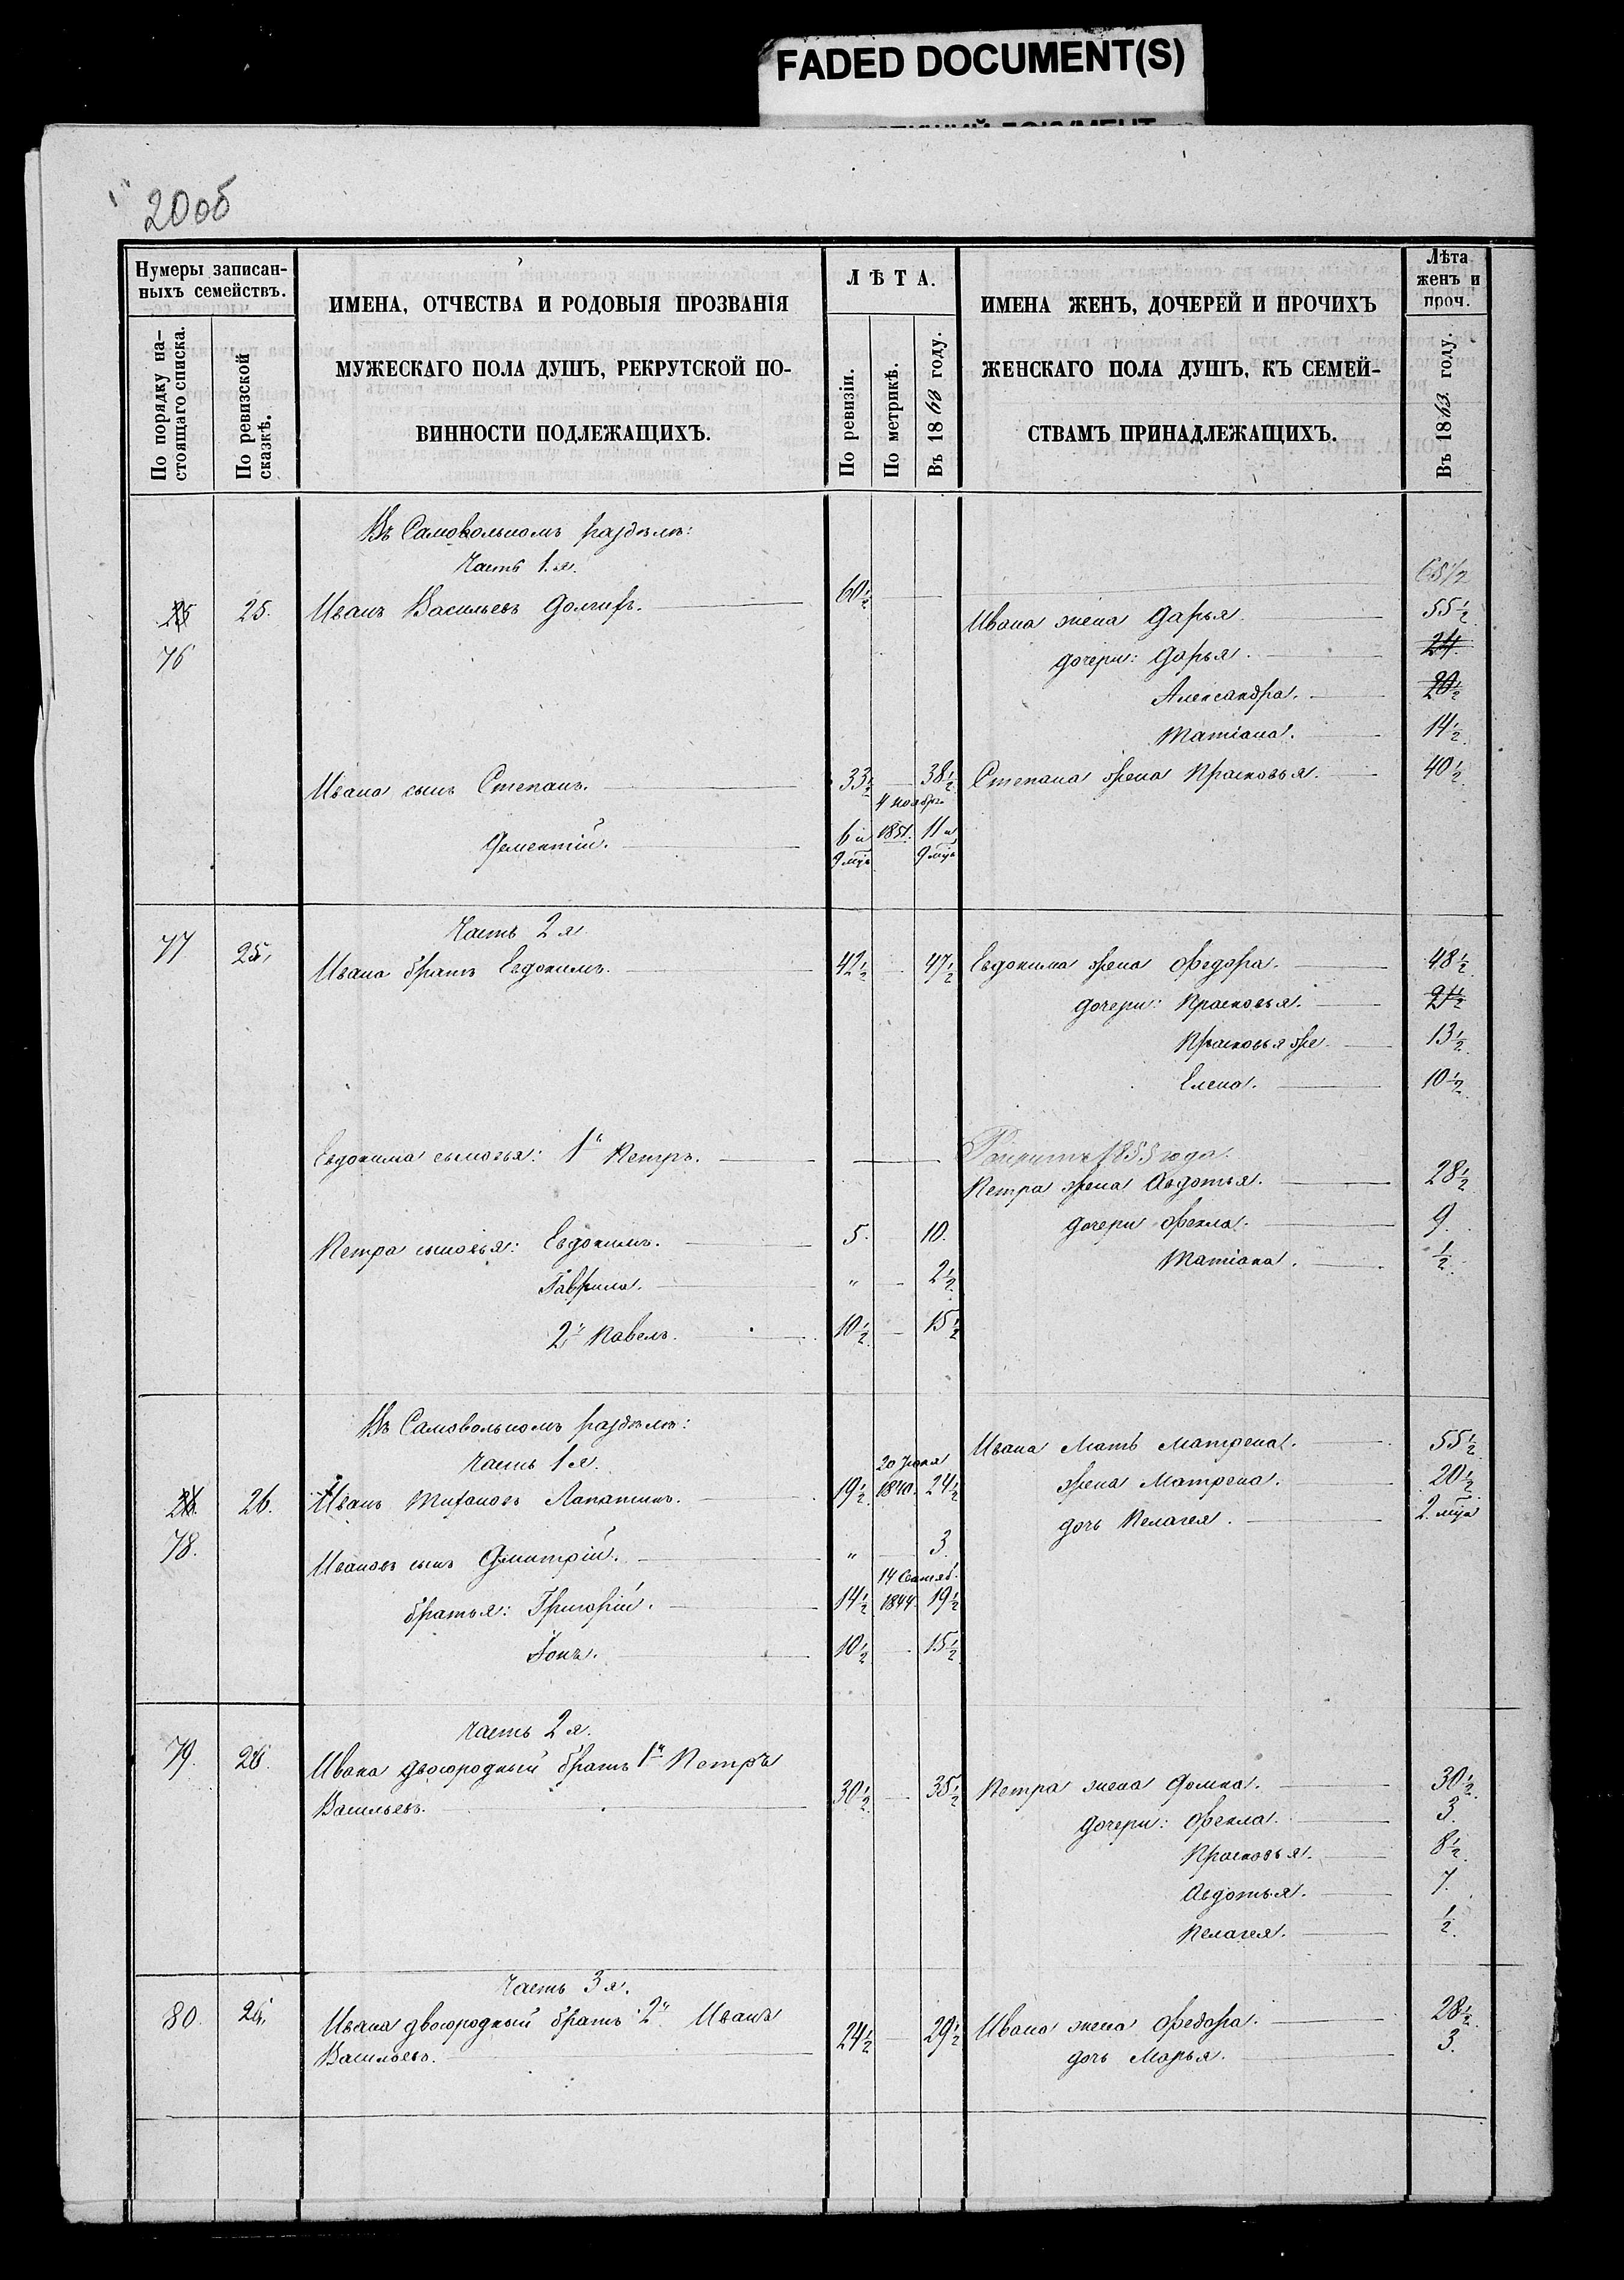 FADED DOCUMENT(S)
20об
Нумеры записан-
ныхъ семействъ.
По порядку на-
стоящаго списка.
По ревизской
сказкѣ.
ИМЕНА, ОТЧЕСТВА И РОДОВЫЯ ПРОЗВАНІЯ
МУЖЕСКАГО ПОЛА ДУШЪ, РЕКРУТСКОЙ ПО-
ВИННОСТИ ПОДЛЕЖАЩИХЪ.
ЛѢТА.
По ревизіи.
По метрикѣ.
Въ 1863 году.
ИМЕНА ЖЕНЪ, ДОЧЕРЕЙ И ПРОЧИХЪ
ЖЕНСКАГО ПОЛА ДУШЪ, КЪ СЕМЕЙ-
СТВАМЪ ПРИНАДЛЕЖАЩИХЪ.
Лѣта
женъ и
проч.
Въ 1863 году.
Въ Самовольномъ раздѣлѣ:
Часть 1.я.
65 1/2
25 25. Иванъ Васильевъ 60 1/2 Ивана жена Дарья. 55 1/2
76 дочери: Дарья. 24.
Александра. 20 1/2
Татіана. 14 1/2
Ивана сынъ Степанъ. 33 1/2 38 1/2 Степана жена Прасковья. 40 1/2
4 ноябр.
Дементій. 6 и 1851. 11 и
9 мц. 9 мц.
Часть 2 я
77 25. Ивана братъ Евдокимъ. 42 1/2 47 1/2 Евдокима жена Федора. 48 1/2
дочери: Прасковья. 21 1/2
Прасковья же 13 1/2
Елена. 10 1/2
Евдокима сыновья: 1й Петръ. 1855 года.
Петра жена Авдотья. 28 1/2
Петра сыновья: Евдокимъ. 5. 10. дочери Фекла. 9.
Татіана. 1/2
Гаврила. " 2 1/2
2й Павелъ. 10 1/2 15 1/2
Въ Самовольномъ раздѣлѣ:
Часть 1 я.
Ивана Мать Матрена. 55 1/2
20 Іюня
26. 26. Иванъ Тихановъ Лапатинъ. 19 1/2 1840. 24 1/2 жена Матрена. 20 1/2
дочь Пелагея. 2. мца
78. Ивановъ сынъ Дмитрій. " 3.
14 Сентяб.
братья: Григорій. 14 1/2 1844 19 1/2
Іонъ. 10 1/2 15 1/2
Часть 2 я.
79. 26. Ивана двоюродный братъ 1й Петръ
Васильевъ. 30 1/2 35 1/2 Петра жена Домна. 30 1/2
дочери: Фекла. 3.
Прасковья. 8 1/2
Авдотья. 7.
Пелагея. 1/2
Часть 3 я.
80. 26. Ивана двоюродный братъ 2й Иванъ
Васильевъ. 24 1/2 29 1/2 Ивана жена Федора. 28 1/2
дочь Марья. 3.